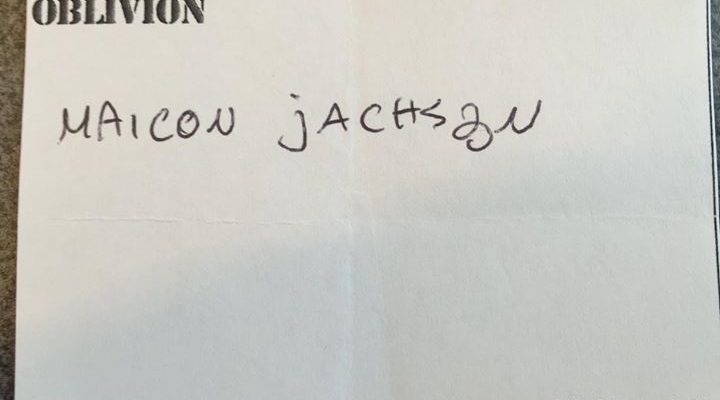 OBLIVION
MAICON jACHSON